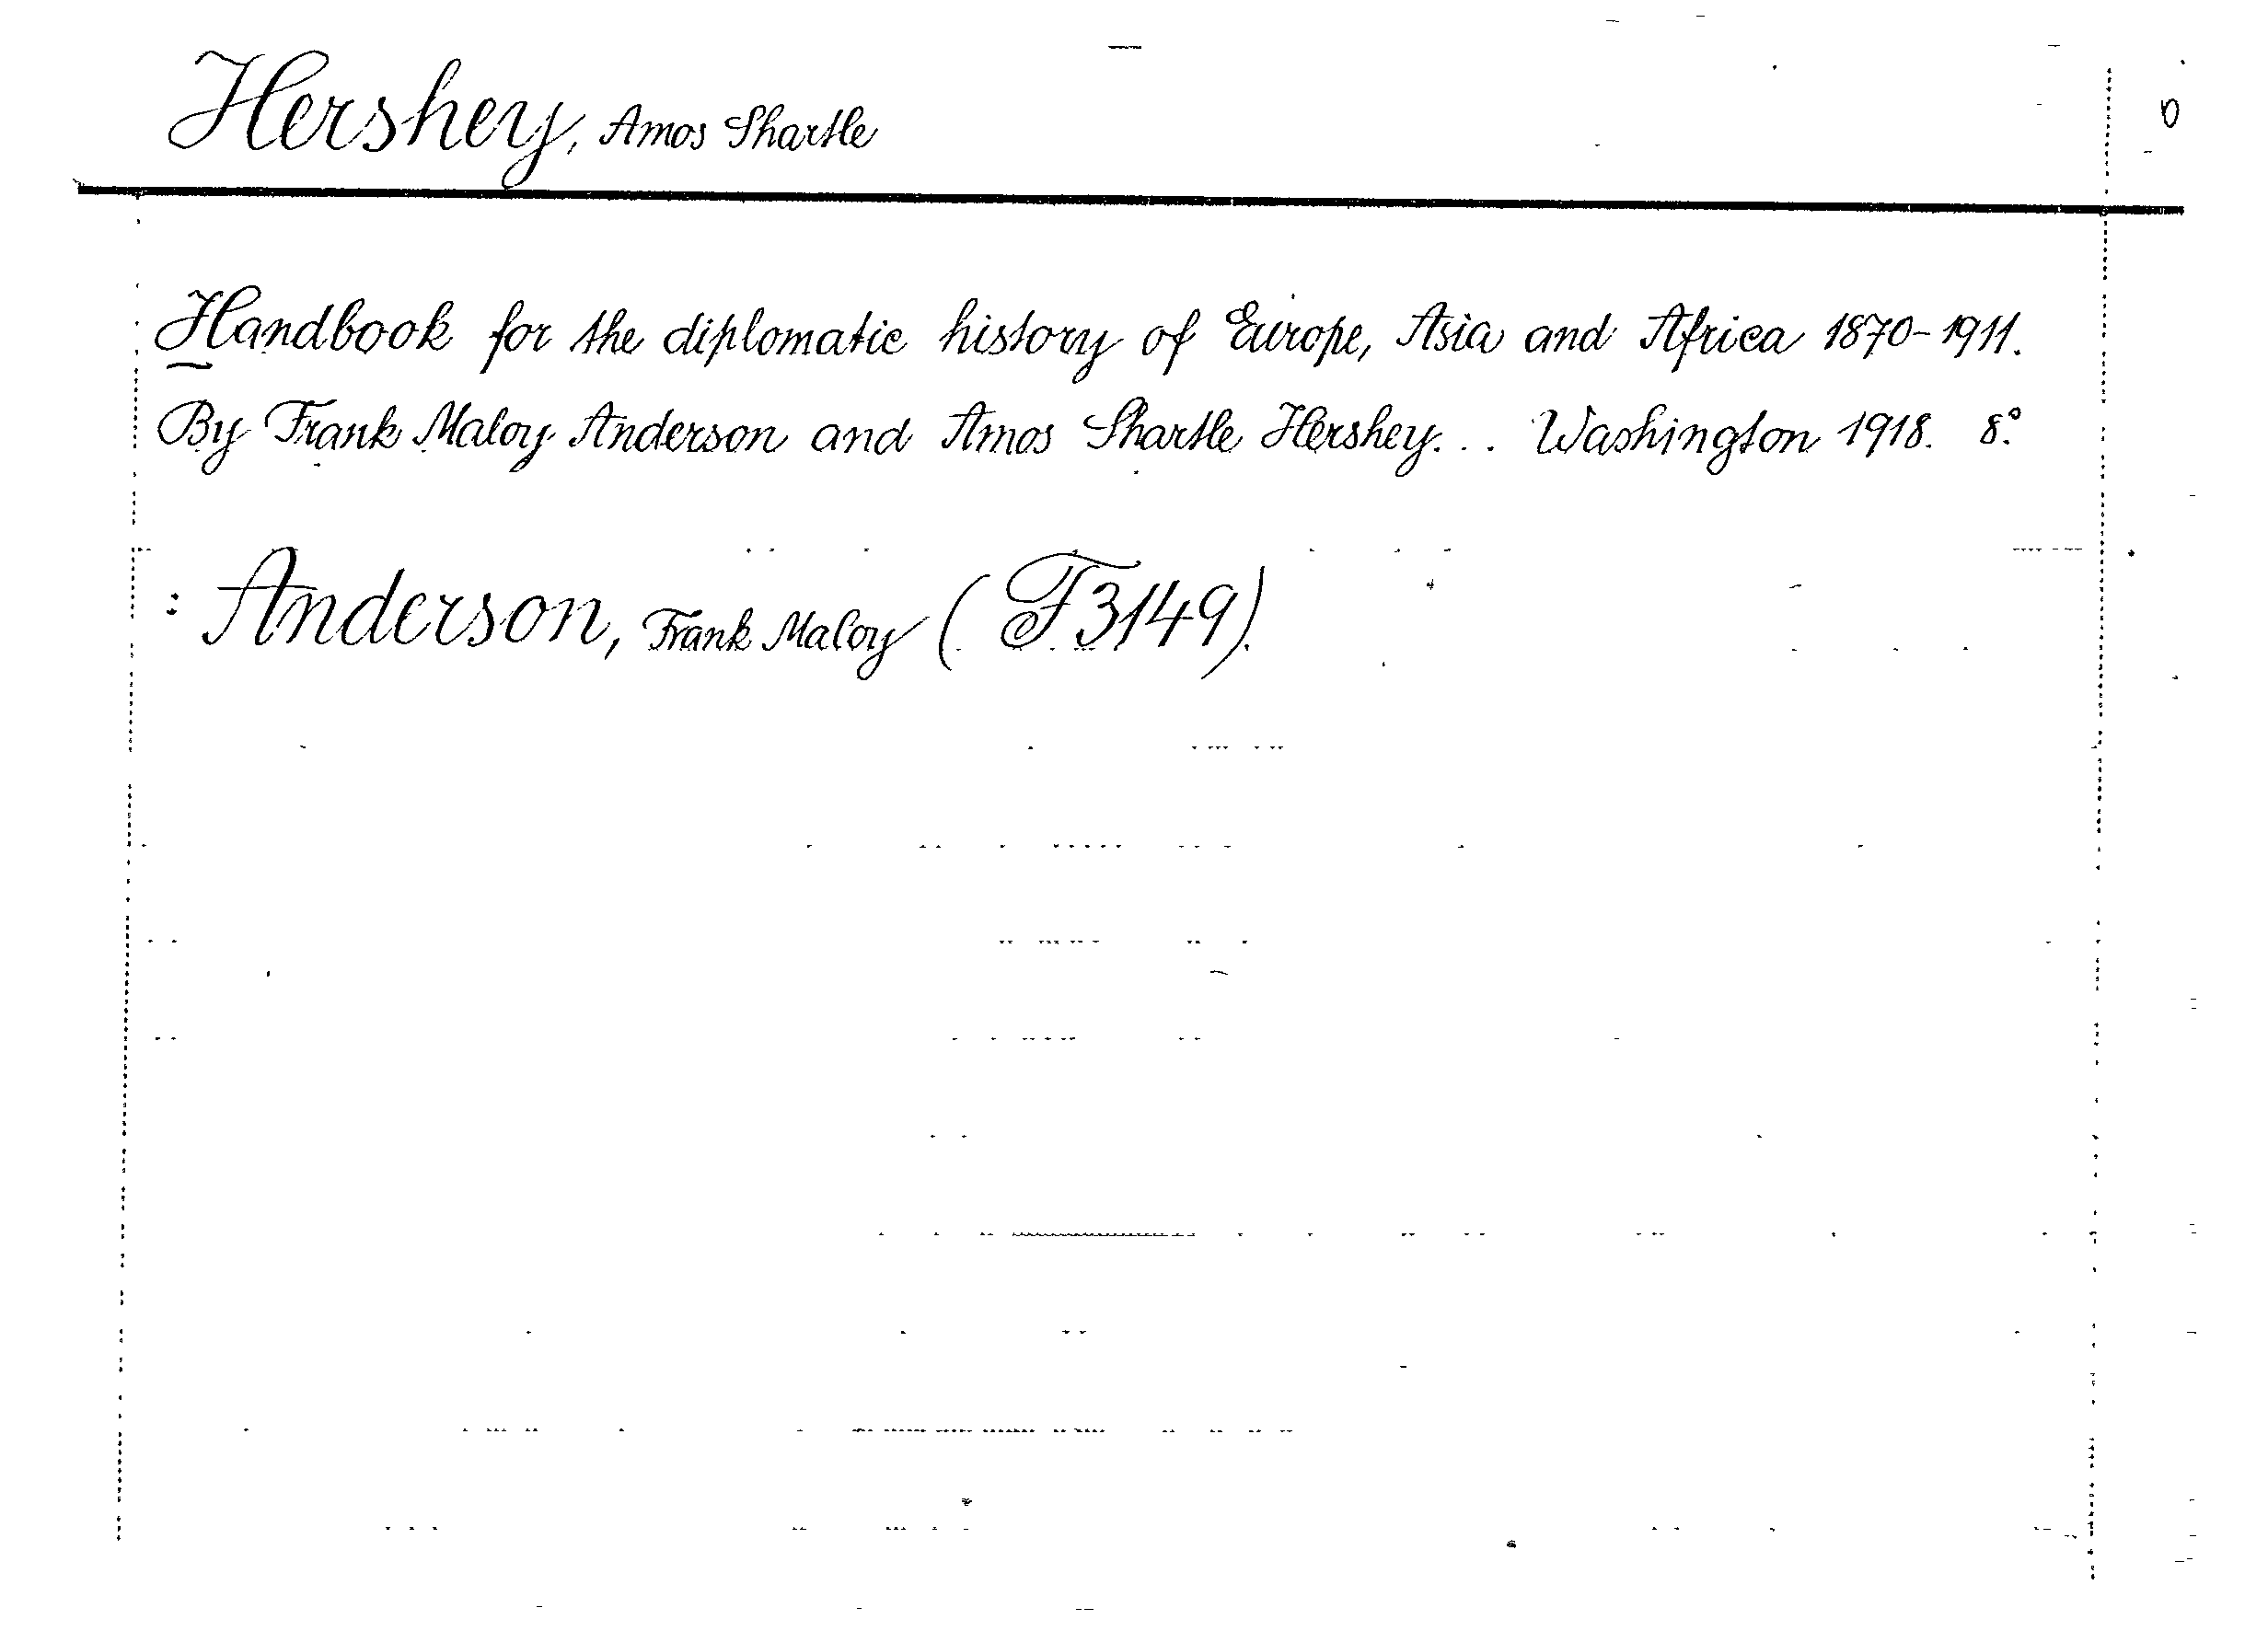 Hershey, Amos Shartle
Handbook for the diplomatic history of Europe, Asia and Africa 1870-1911.
By Frank Maloy Anderson and Amos Shartle Hershey... Washington 1918. 8°.
: Anderson, Frank Maloy (F3149).